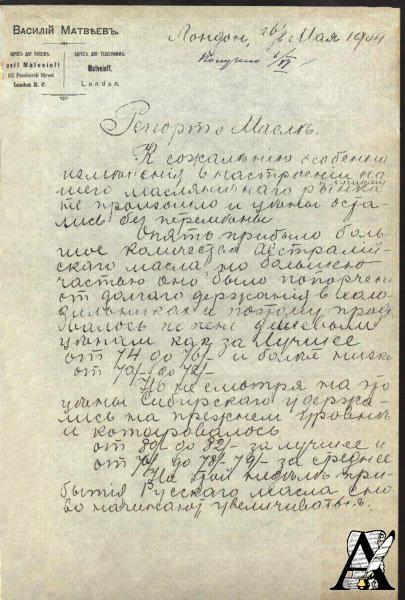 Василій Матвѣевъ.
АДРЕСЪ ДЛЯ ПИСЕМЪ:
asil Matveieff
102 Fenchurch Street
London E. C.
АДРЕСЪ ДЛЯ ТЕЛЕГРАММЪ:
Matveieff.
London.
Лондон, Мая 1904
Получено
Репортъ о Маслѣ.
К сожалѣнію особенно
измѣненія в настроеніи на
шего масляничнаго рынка
не произошло и цѣны оста
лись без перемѣны
Опять прибыло боль
шое количество Австралій
скаго масла, но большею
частью оно было попорчено
от долгаго держанія в холо
дильниках и поэтому прода
валось по дешевым
цѣнам как за лучшее
от 74 до 76/- и болѣе низко
от 70/- до 72/-
Но не смотря на это
цѣны Сибирскаго удержа
лись на прежнем уровнѣ
и котировалось
от 80/- до 82/- за лучшее и
от 76/- до 78/- 79/- за среднее
На этой недѣлѣ при
бытія Русскаго масла сно
во начинают увеличиваться.